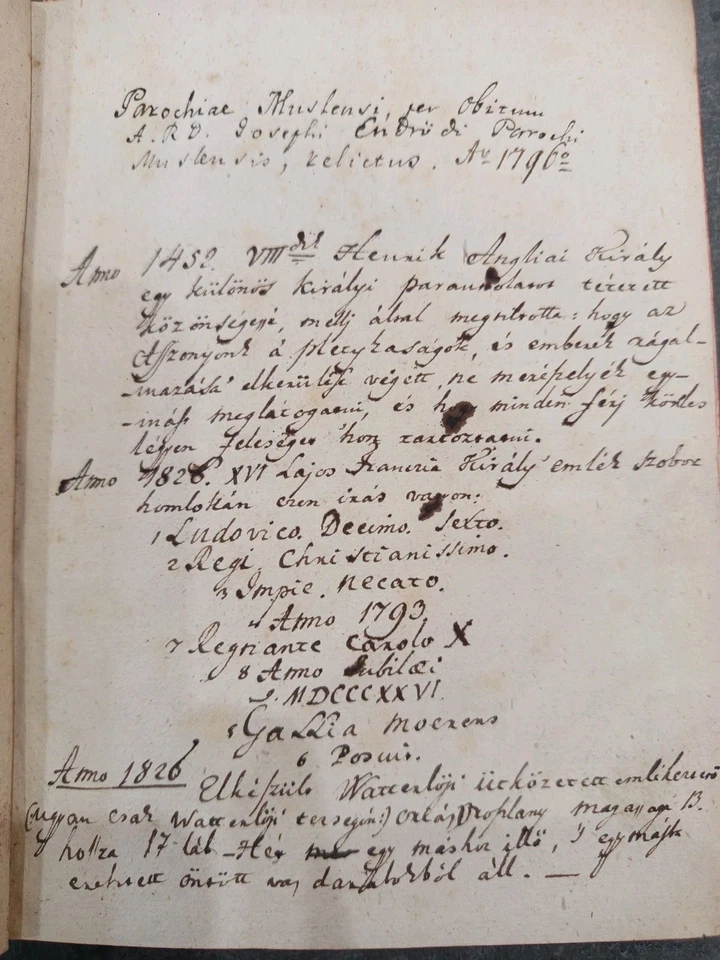 Parochiae Muslensi, per Obitum
A. R. D. Josephi Endrődi Parochi
Muslensis, relictus. Aº 1796º
Anno 1452. VIIIdik Henrik Angliai Király
egy különös királyi parantsolatot tétetett
közönségessé, mellj által megtiltotta: hogy az
Aszonyok á pletykaságok, és emberek rágal-
-mazása' elkerülése végett, ne merészelyék egy-
-mást meglátogatni, és hogy minden férj köteles
légyen feleségét 'hon tartóztatni.
Anno 1826. XVI Lajos Francia Király' emlék szobor
homlokán ezen irás vagyon:
1 Ludovico. Decimo. Sexto.
2 Regi. Christianissimo.
3 Impie. Necato.
4 Anno 1793
7 Regnante Carolo X
8 Anno Jubilæi
9. MDCCCXXVI.
5 Gallia moerens
6 Posuit.
Anno 1826 Elkészült Watterlóji ütközetett emlékeztető
(:ugyan csak Watterlóji térségén:) Oroszlány magassága 13.
hossza 17 láb - Hét egy máshoz illő, 's egymásba
öntött vas darabokból áll. —